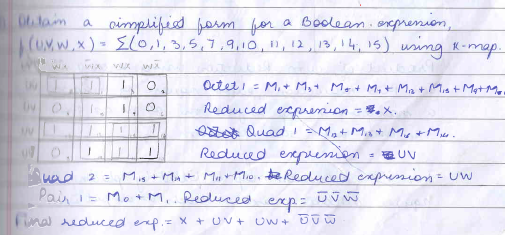 Obtain a simplified form for a Boolean expression,
f(U,V,W,X) = Σ(0, 1, 3, 5, 7, 9, 10, 11, 12, 13, 14, 15) using K-map.
1 1 1 0 Octet 1 = M₁ + M₃ +
0 1 1 0 Reduced expression = X.
1 1 1 1 Quad 1 = M₁₂ + M₁₃ + M₁₅ + M₁₄.
0 1 1 1 Reduced expression = UV
Quad 2 = M₁₅ + M₁₄ + M₁₁ + M₁₀. Reduced expression = UW
Pair 1 = M₀ + M₁. Reduced exp = U̅ V̅ W̅
Final reduced exp. = X + UV + UW + U̅ V̅ W̅